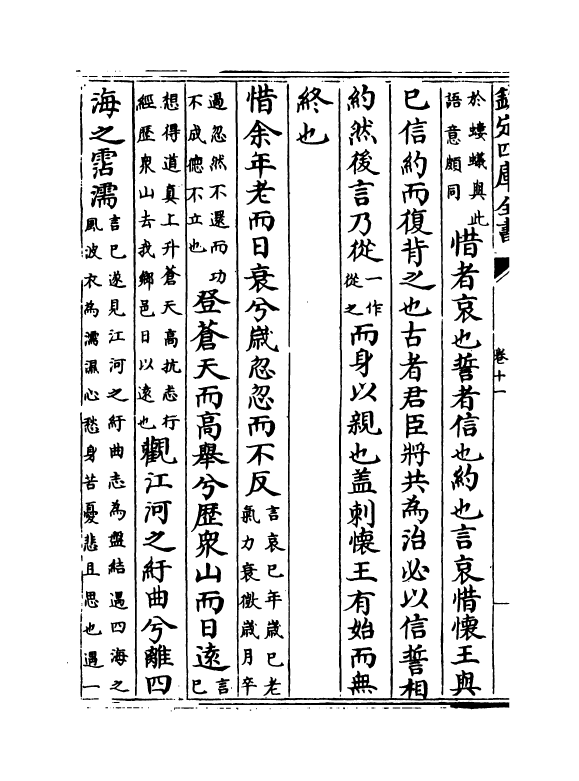 欽定四庫全書 卷十一
於螻蟻與此語意頗同惜者哀也誓者信也約也言哀惜懷王與
已信約而復背之也古者君臣將共為治必以信誓相
約然後言乃從一作從之而身以親也盖刺懷王有始而無
終也
惜余年老而日衰兮嵗忽忽而不反言哀已年嵗已老氣力衰微嵗月卒
過忽然不還而功不成徳不立也登蒼天而高舉兮歴衆山而日逺言已
想得道真上升蒼天高抗志行經歴衆山去我鄉邑日以逺也觀江河之紆曲兮離四
海之霑濡言已遂見江河之紆曲志為盤結遇四海之風波衣為濡濕心愁身苦憂悲且思也遇一